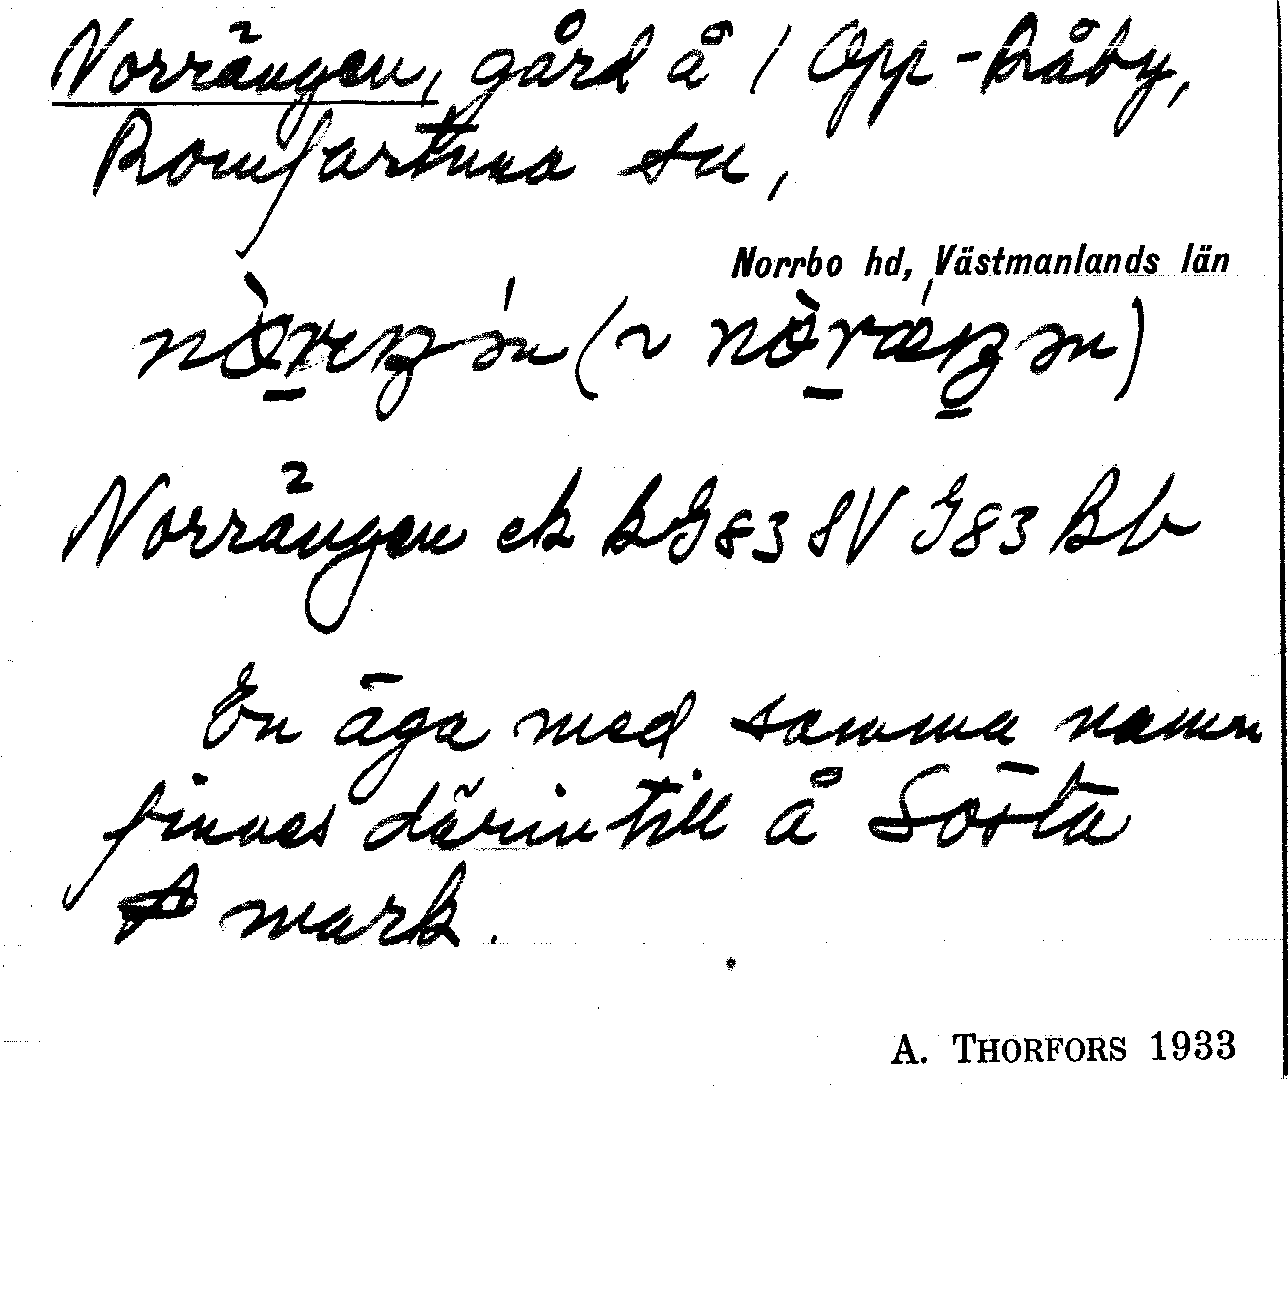 Norrängen, gård å 1 Opp-Råby,
Romfartuna sn,
Norrbo hd, Västmanlands län
Norrängen ek kG83 8V G83 Bb
En äga med samma namn
finnes därintill å Sörsta
mark.
A. THORFORS 1933